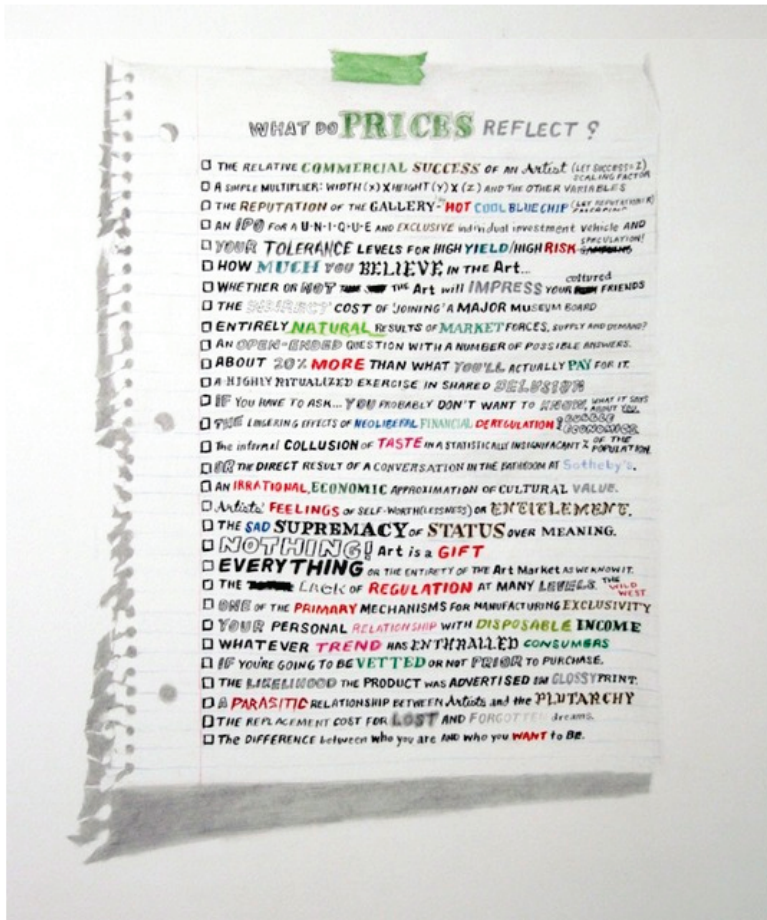 WHAT DO PRICES REFLECT?
THE RELATIVE COMMERCIAL SUCCESS OF AN Artist (LET SUCCESS=Z) SCALING FACTOR
A SIMPLE MULTIPLIER: WIDTH (X) X HEIGHT (Y) X (Z) AND THE OTHER VARIABLES
THE REPUTATION OF THE GALLERY- HOT COOL BLUE CHIP
AN IPO FOR A U·N·I·Q·U·E AND EXCLUSIVE individual investment vehicle AND
YOUR TOLERANCE LEVELS FOR HIGH YIELD/HIGH RISK SPECULATION!
HOW MUCH YOU BELIEVE IN THE Art...
WHETHER OR NOT THE Art will IMPRESS YOUR cultured FRIENDS
THE INDIRECT COST OF 'JOINING' A MAJOR MUSEUM BOARD
ENTIRELY NATURAL RESULTS OF MARKET FORCES, SUPPLY AND DEMAND?
AN OPEN-ENDED QUESTION WITH A NUMBER OF POSSIBLE ANSWERS.
ABOUT 20% MORE THAN WHAT YOU'LL ACTUALLY PAY FOR IT.
A HIGHLY RITUALIZED EXERCISE IN SHARED DELUSION
IF YOU HAVE TO ASK... YOU PROBABLY DON'T WANT TO KNOW, WHAT IT SAYS ABOUT YOU.
THE LINGERING EFFECTS OF NEOLIBERAL FINANCIAL DEREGULATION BUBBLE ECONOMICS
The internal COLLUSION OF TASTE IN A STATISTICALLY INSIGNIFACANT % OF THE POPULATION.
OR THE DIRECT RESULT OF A CONVERSATION IN THE BATHROOM AT Sotheby's.
AN IRRATIONAL, ECONOMIC APPROXIMATION OF CULTURAL VALUE.
Artists' FEELINGS OF SELF-WORTH(LESSNESS) OR ENTITLEMENT.
THE SAD SUPREMACY OF STATUS OVER MEANING.
NOTHING! Art is a GIFT
EVERYTHING OR THE ENTIRETY OF THE Art Market AS WE KNOW IT.
THE LACK OF REGULATION AT MANY LEVELS. THE WILD WEST
ONE OF THE PRIMARY MECHANISMS FOR MANUFACTURING EXCLUSIVITY
YOUR PERSONAL RELATIONSHIP WITH DISPOSABLE INCOME
WHATEVER TREND HAS ENTHRALLED CONSUMERS
IF YOU'RE GOING TO BE VETTED OR NOT PRIOR TO PURCHASE.
THE LIKELIHOOD THE PRODUCT WAS ADVERTISED IN GLOSSY PRINT.
A PARASITIC RELATIONSHIP BETWEEN Artists and the PLUTARCHY
THE REPLACEMENT COST FOR LOST AND FORGOTTEN dreams.
The DIFFERENCE between who you are AND who you WANT to BE.